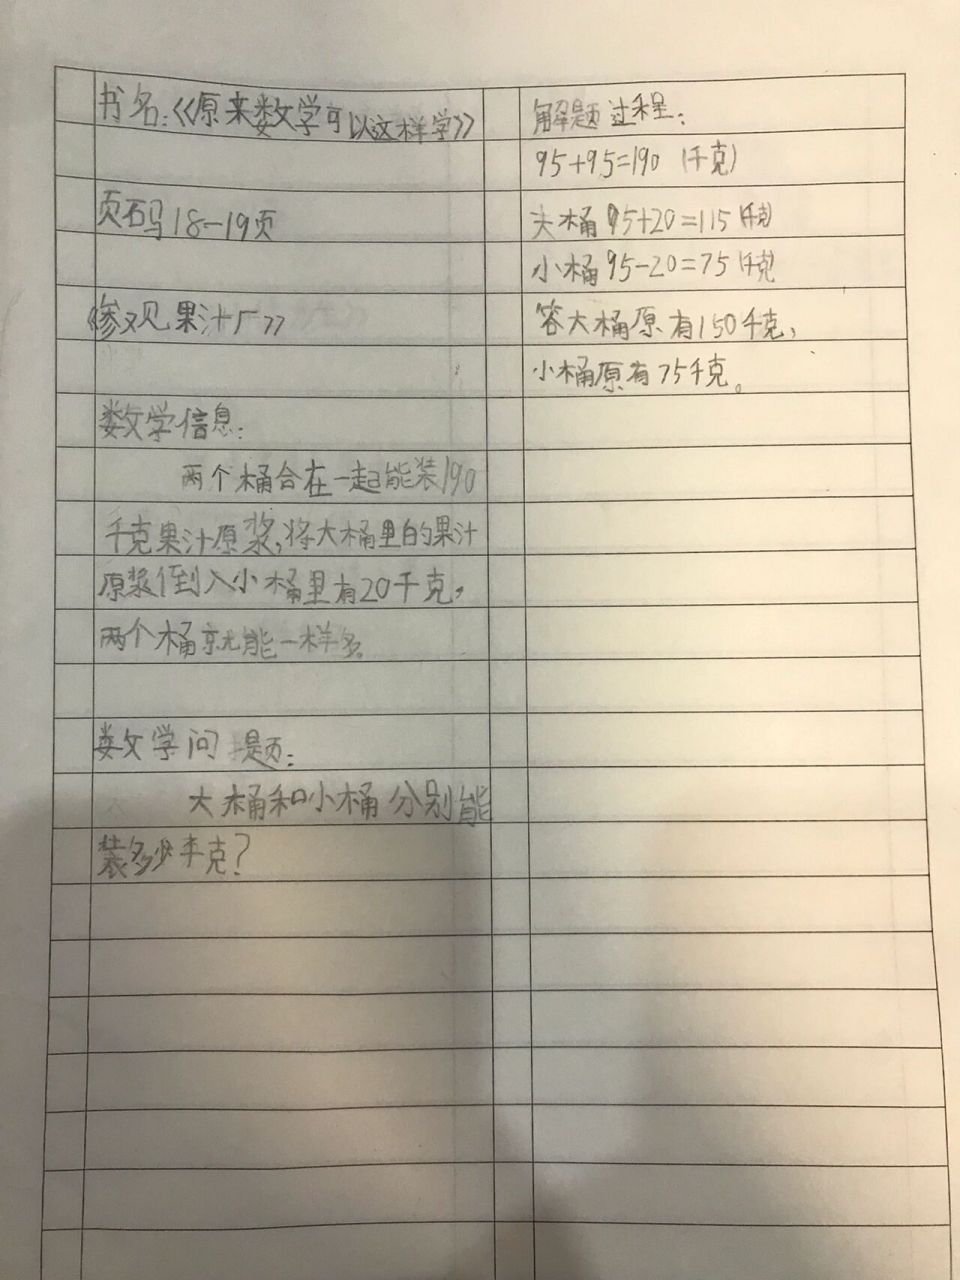 书名:《原来数学可以这样学》
页码18-19页
《参观果汁厂》
数学信息:
两个桶合在一起能装190
千克果汁原浆,将大桶里的果汁
原浆倒入小桶里有20千克,
两个桶就能一样多。
数学问题:
大桶和小桶分别能
装多少千克?
解题过程:
95+95=190 (千克)
大桶 95+20=115 千克
小桶 95-20=75 千克
答大桶原有150千克,
小桶原有75千克。